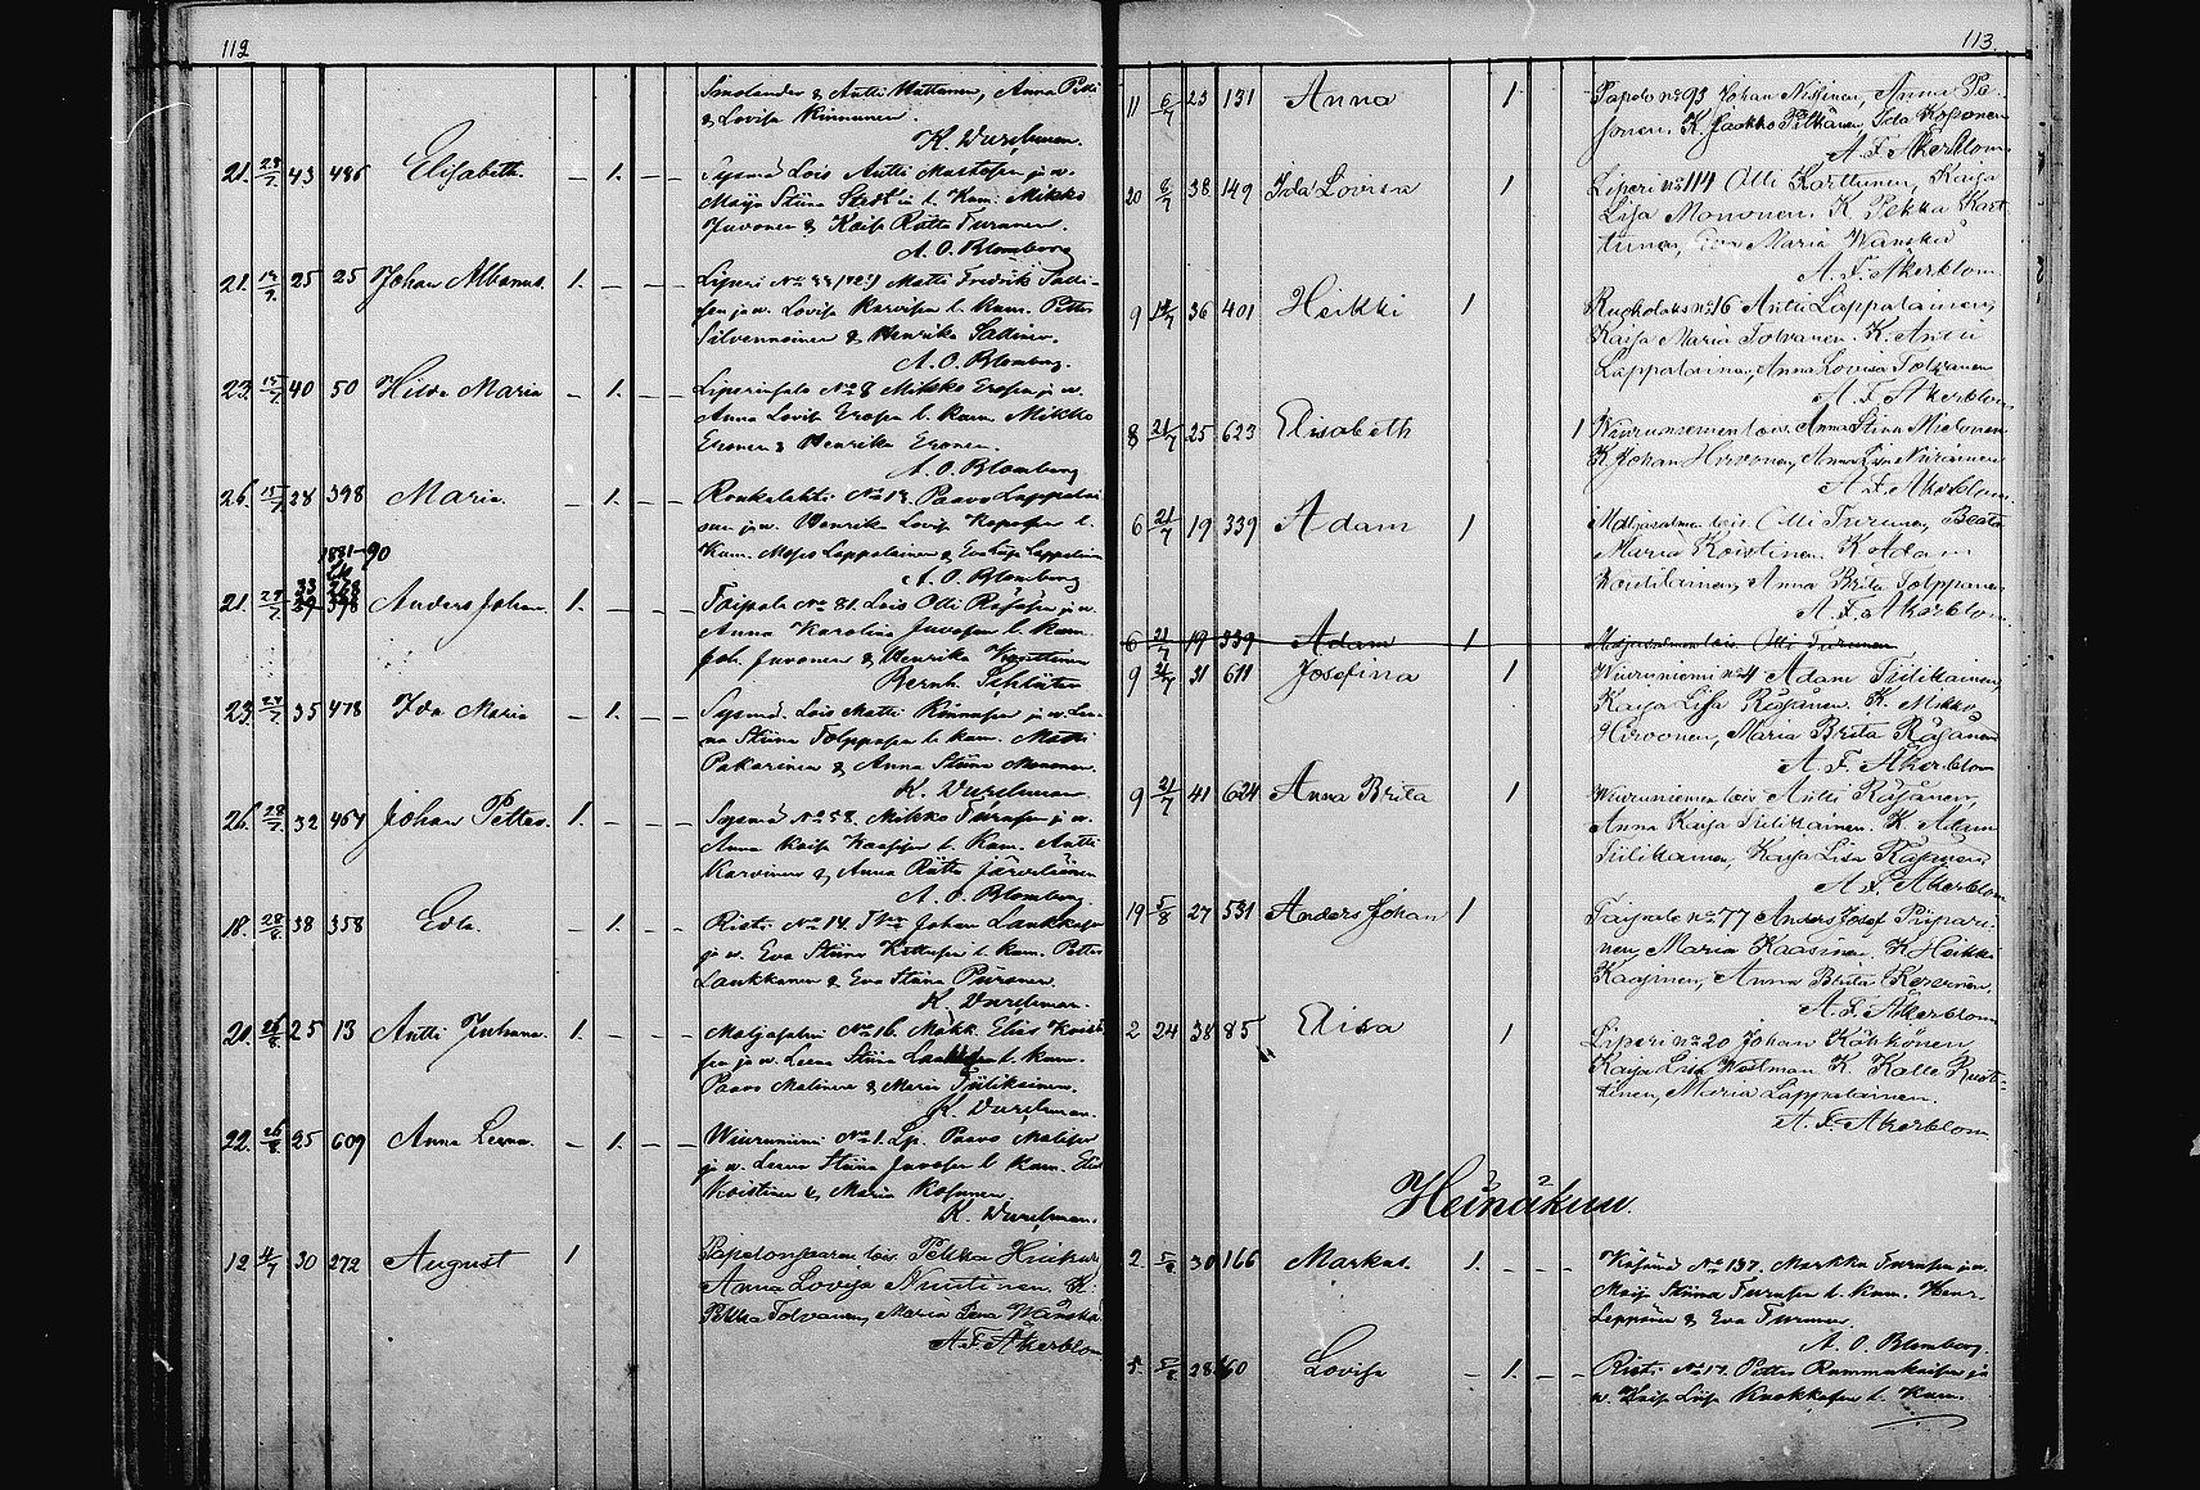 112
Smolander & Antti Muttonen, Anna Pitk
& Lovisa Kinnunen.
K. Durchman.
21. 28/7. 43 486 Elisabeth. — 1. — — Sysmä Lois Antti Mustosen ja w.
Maija Stiina l. Kum: Mikko
Juvonen & Kaisa Riitta Turunen.
A. O. Blomberg
21. 25 25 Johan Albanus. 1. — — — Liperi No Matti Fredrik
ja w. Lovisa Karvisen l. Kum. Petter
Silvennoinen & Henrika Sallinen.
A. O. Blomberg.
23. 40 50 Hilda Maria — 1. — — Liperinsalo No 8 Mikko Erosen ja w.
Anna Lovisa Erosen l. Kum. Mikko
Eronen & Henrika Eronen.
A. O. Blomberg
26. 15/7 28 398 Maria. — 1. — — Roukalahti No 18. Paavo Lappalai
sen ja w. Henrika Lovisa Koposen l.
Kum. Moses Lappalainen & Eva Liisa Lappalainen
A. O. Blomberg
1881-90
33 268
21. 27/7. 39 398 Anders Johan. 1. — — — Taipale No 81. Lois Olli Räsäsen ja w.
Anna Karolina Juvosen l. Kum.
Joh. Juvonen & Henrika
Bernh. Schlüter
23. 27/7. 35 478 Ida Maria — 1. — — Sysmä. Lois Matti Kinnusen ja w. Lee-
na Stiina Tolpposen l. Kum. Matti
Pakarinen & Anna Stiina Mononen.
K. Durchman
26. 28/7. 32 464 Johan Petter. 1. — — — Sysmä No 58. Mikko Turusen ja w.
Anna Kaisa Kaasisen l. Kum. Antti
Karvinen & Anna Riitta Järveläinen
A. O. Blomberg.
18. 28/8. 38 358 Edla. — 1. — — Risti No 14. Johan Laukkasen
ja w. Eva Stiina l. Kum. Petter
Laukkanen & Eva Stiina Piironen.
K. Durchman.
20. 26/8. 25 13 Antti Juhana. 1. — — — Maljasalmi No 16. Mökk. Elias Koisti
sen ja w. Leena Stiina l. Kum.
Paavo Malinen & Maria Tiilikainen.
K. Durchman.
22. 26/8. 25 609 Anna Leena. — 1. — — Wiiruniemi No 1. Lp. Paavo Malisen
ja w. Leena Stiina Juvosen l. Kum. Elias
Koistinen & Maria Kosunen.
K. Durchman.
12 4/7 30 272 August 1 Papelonsaaren lois. Pekka
Anna Lovisa Nuutinen. K:
Pekka Tolvanen, Maria Lena Wänskä
A. F. Åkerblom
113.
11 6/7 23 131 Anna 1 Papelo no 93 Johan Nissinen, Anna Pa-
sonen. K. Jaakko Pitkänen, Ida Koponen
A. F. Åkerblom
20 6/7 38 149 Ida Lovisa 1 Liperi no 114 Olli Karttunen, Kaisa
Lisa Mononen. K. Pekka Kart
tunen, Eva Maria Wänskä
A. F. Åkerblom.
9 14/7 36 401 Heikki 1 Ruokolaks no 16 Antti Lappalainen,
Kaisa Maria Tolvanen. K. Antti
Lappalainen, Anna Lovisa Tolvanen
A. F. Åkerblom
8 21/7 25 623 Elisabeth 1 Wiiruniemen lois. Anna Stina Mietonen
K. Johan Hirvonen, Anna Lisa Niiranen
A. F. Åkerblom.
6 21/7 19 339 Adam 1 Maljasalmen lois. Olli Turunen, Beata
Maria Koistinen. K. Adam
Woutilainen, Anna Brita Tolppanen
A. F. Åkerblom.
6 21/7 19 339 Adam 1 Maljasalmen lois. Olli Turunen
9 21/7 31 611 Josefina 1 Wiiruniemi no 4 Adam Tiilikainen,
Kaisa Lisa Räsänen. K. Mikko
Hirvonen, Maria Brita Räsänen
A. F. Åkerblom
9 21/7 41 624 Anna Brita 1 Wiiruniemen lois Antti Räsänen,
Anna Kaisa Tiilikainen. K. Adam
Tiilikainen, Kaisa Lisa Räsänen
A. F. Åkerblom
19 5/8 27 531 Anders Johan 1 Taipale no 77 Anders Josef Piipari-
nen, Maria Kaasinen. K. Heikki
Kaasinen, Anna Brita Kervinen.
A. F. Åkerblom
2 24 38 85 Elisa 1 Liperi no 20 Johan Kähkönen,
Kaisa Lisa Westman K. Kalle Rust-
tinen, Maria Lappalainen.
A. F. Åkerblom.
Heinäkuu.
2. 5/8. 30 166 Markus. 1. — — — Käsämä No 137. Markku Turusen ja w.
Maija Stiina Turusen l. Kum. Henr.
Leppänen & Eva Turunen.
A. O. Blomberg.
5. 28 60 Lovisa — 1. — — Risti No 17. Petter Rummukaisen ja
w. Kaisa Liisa Kuokkasen l. Kum.